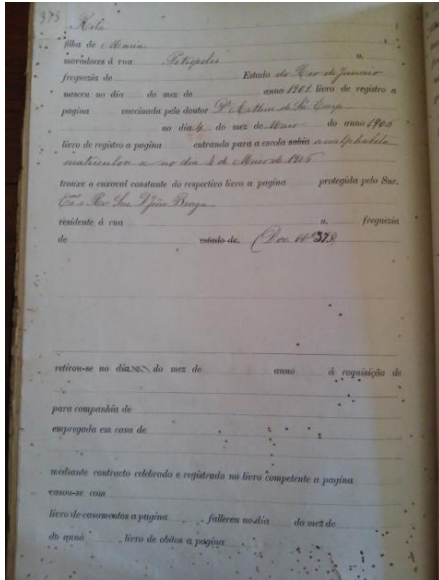 373
Rita
filha de Maria
moradores á rua Petropolis n.
freguezia de Estado do Rio de Janeiro
nasceu no dia do mez de anno 1901 livro de registro a
pagina vaccinada pelo doutor Dr Arthur de Sá
no dia 4 do mez de Maio do anno 1906
livro de registro a pagina entrando para a escola sabia analphabeta
matriculou a no dia 4 de Maio de 1906
trouxe o enxoval constante do respectivo livro a pagina protegida pelo Snr.
João Braga
residente á rua n. freguezia
de estado de (Doc. Nº 373)
retirou-se no dia do mez de anno á requisição de
para companhia de
empregada em casa de
mediante contracto celebrado e registrado no livro competente a pagina
casou-se com
livro de casamentos a pagina falleceu no dia do mez de
do anno livro de obitos a pagina